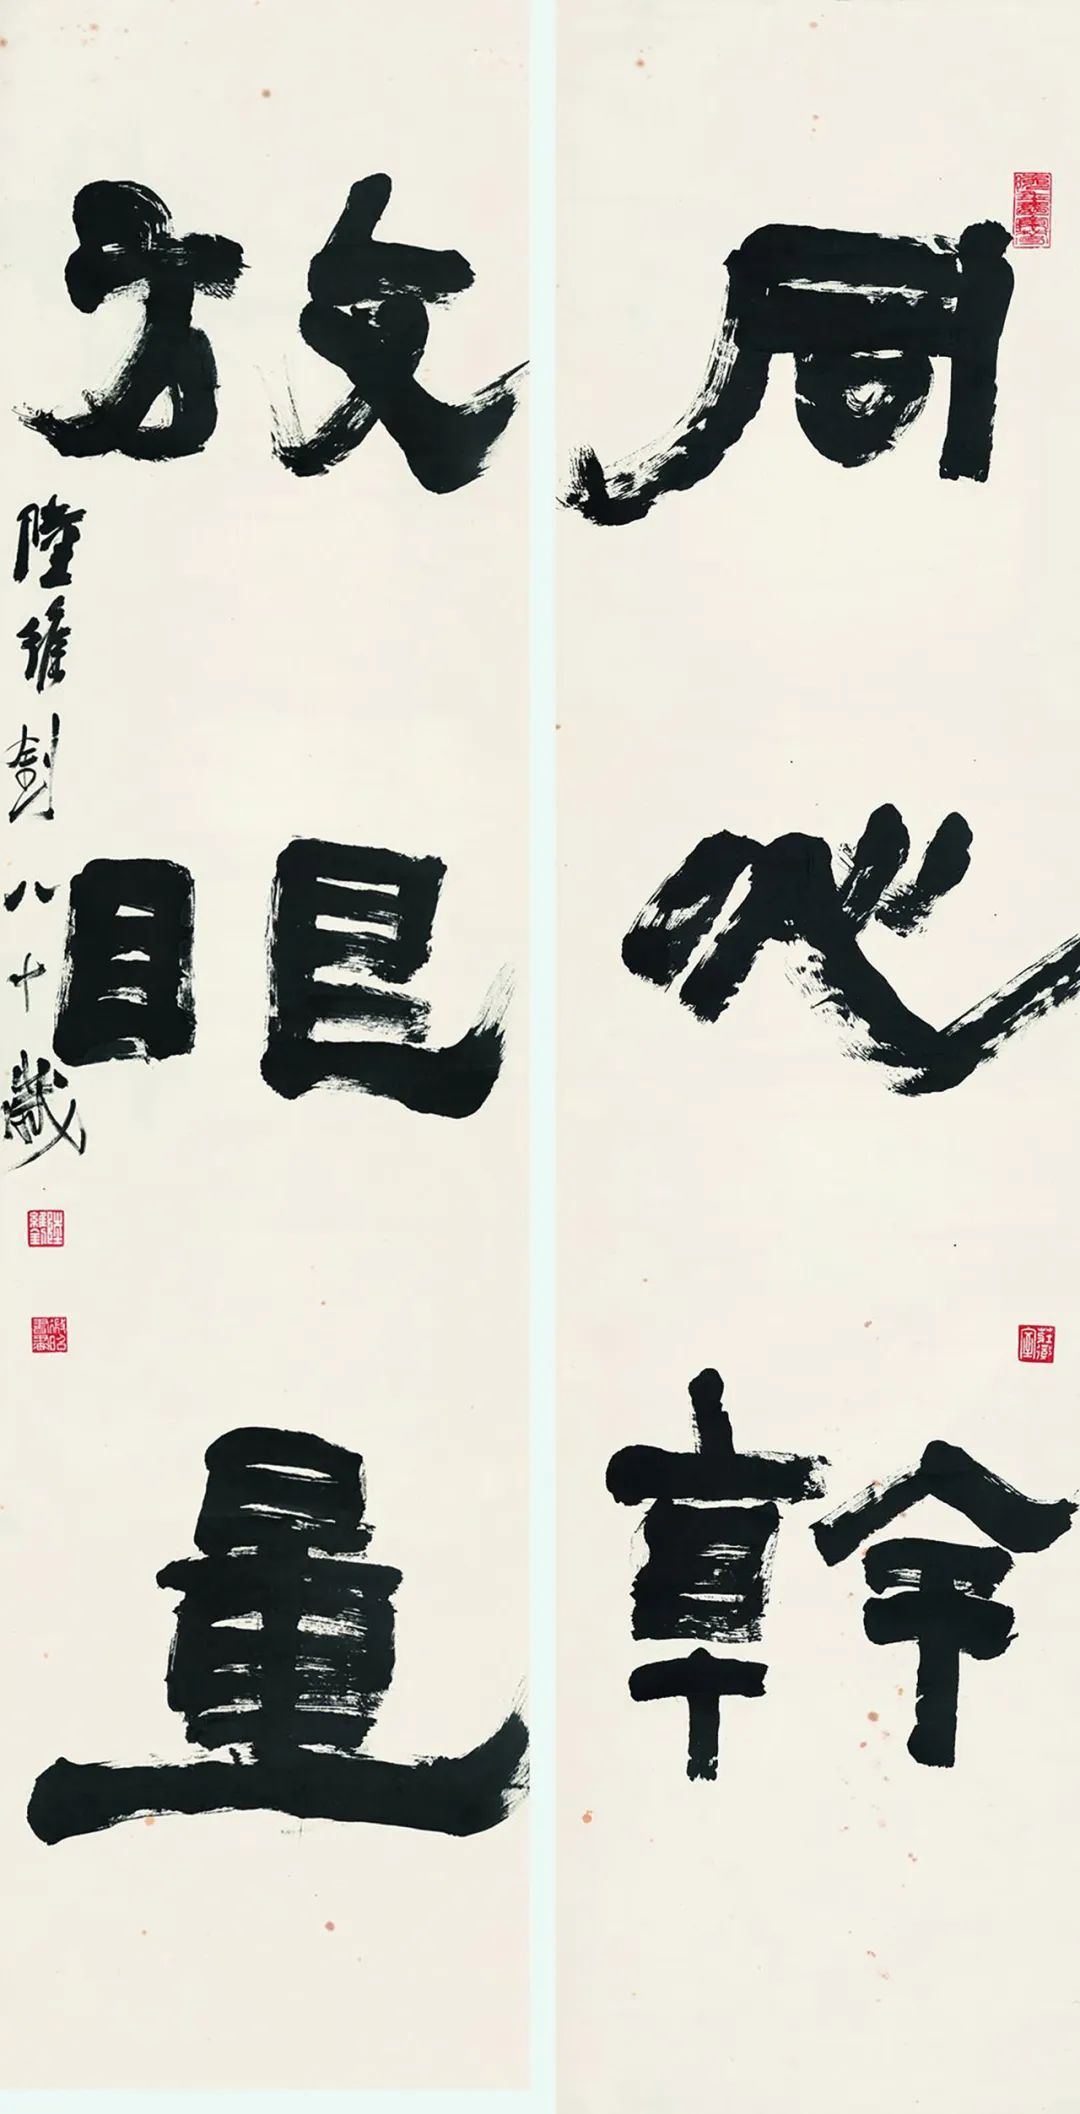 同心幹
放眼量
陸維釗八十歲
陸維釗